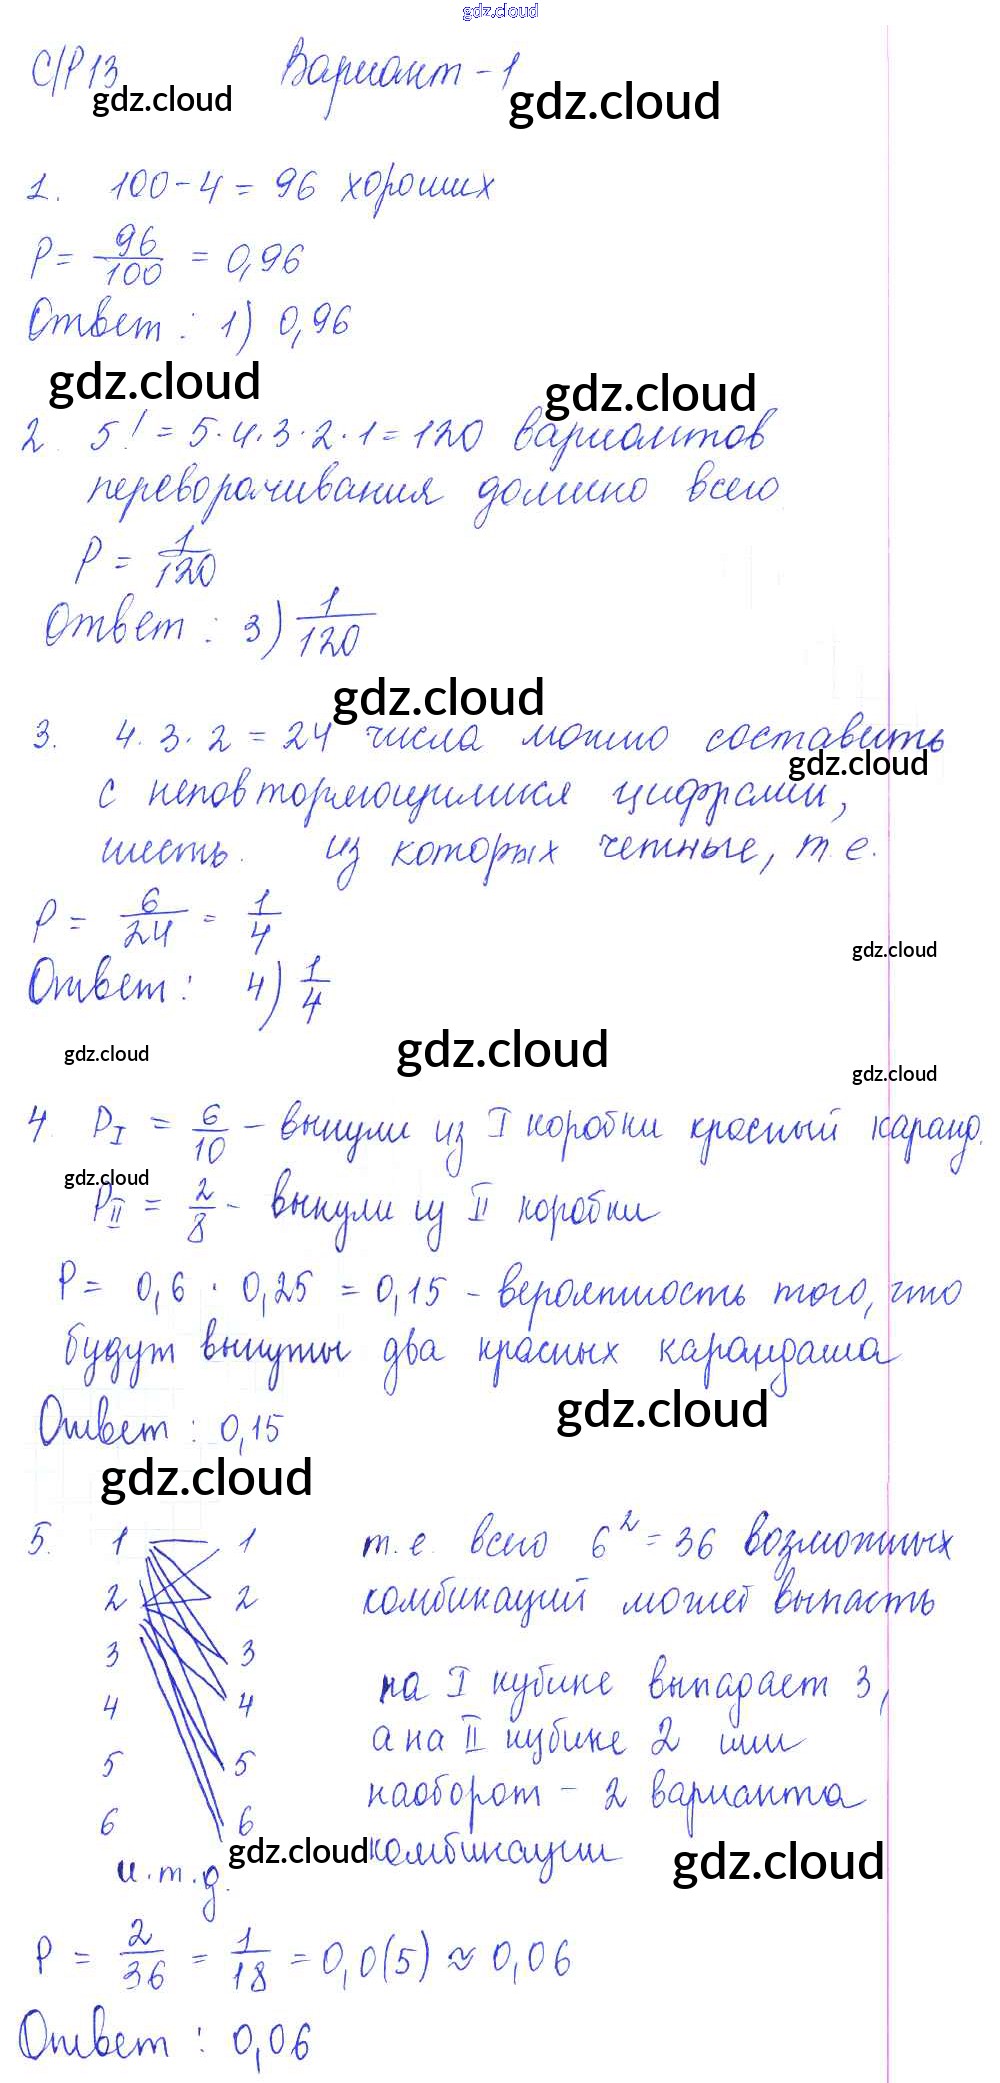 gdz.cloud
С/Р 13 Вариант - 1
gdz.cloud gdz.cloud
1. 100 - 4 = 96 хороших
P = 96/100 = 0,96
Ответ : 1) 0,96
gdz.cloud gdz.cloud
2. 5! = 5·4·3·2·1 = 120 вариантов
переворачивания домино всего
P = 1/120
Ответ : 3) 1/120
gdz.cloud
3. 4·3·2 = 24 числа можно составить
gdz.cloud
с неповторяющимися цифрами,
шесть из которых четные, т.е.
P = 6/24 = 1/4
gdz.cloud
Ответ : 4) 1/4
gdz.cloud gdz.cloud
gdz.cloud
4. P_I = 6/10 - вынули из I коробки красный каранд.
gdz.cloud
P_II = 2/8 - вынули из II коробки
P = 0,6 · 0,25 = 0,15 - вероятность того, что
будут вынуты два красных карандаша
gdz.cloud
Ответ : 0,15
gdz.cloud
5. 1 1 т.е. всего 6² = 36 возможных
2 2 комбинаций может выпасть
3 3
на I кубике выпадает 3,
4 4
а на II кубике 2 или
5 5
наоборот - 2 варианта
6 6
gdz.cloud комбинации gdz.cloud
и.т.д.
P = 2/36 = 1/18 = 0,0(5) ≈ 0,06
Ответ : 0,06